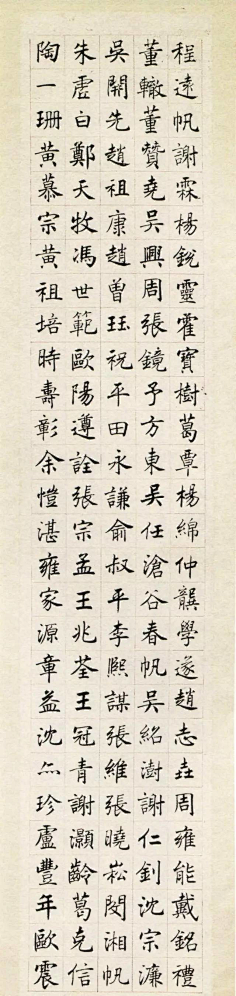 程遠帆謝霖楊銳靈霍寶樹葛覃楊綿仲龔學遂趙志垚周雍能戴銘禮
董轍董贊堯吳興周張鏡予方東吳任滄谷春帆吳紹澍謝仁釗沈宗濂
吳開先趙祖康趙曾玨祝平田永謙俞叔平李熙謀張維張曉崧閔湘帆
朱虛白鄭天牧馮世範歐陽遵詮張宗孟王兆荃王冠青謝灝齡葛克信
陶一珊黃慕宗黃祖培時壽彰余愷湛雍家源章益沈焱珍盧豐年歐震